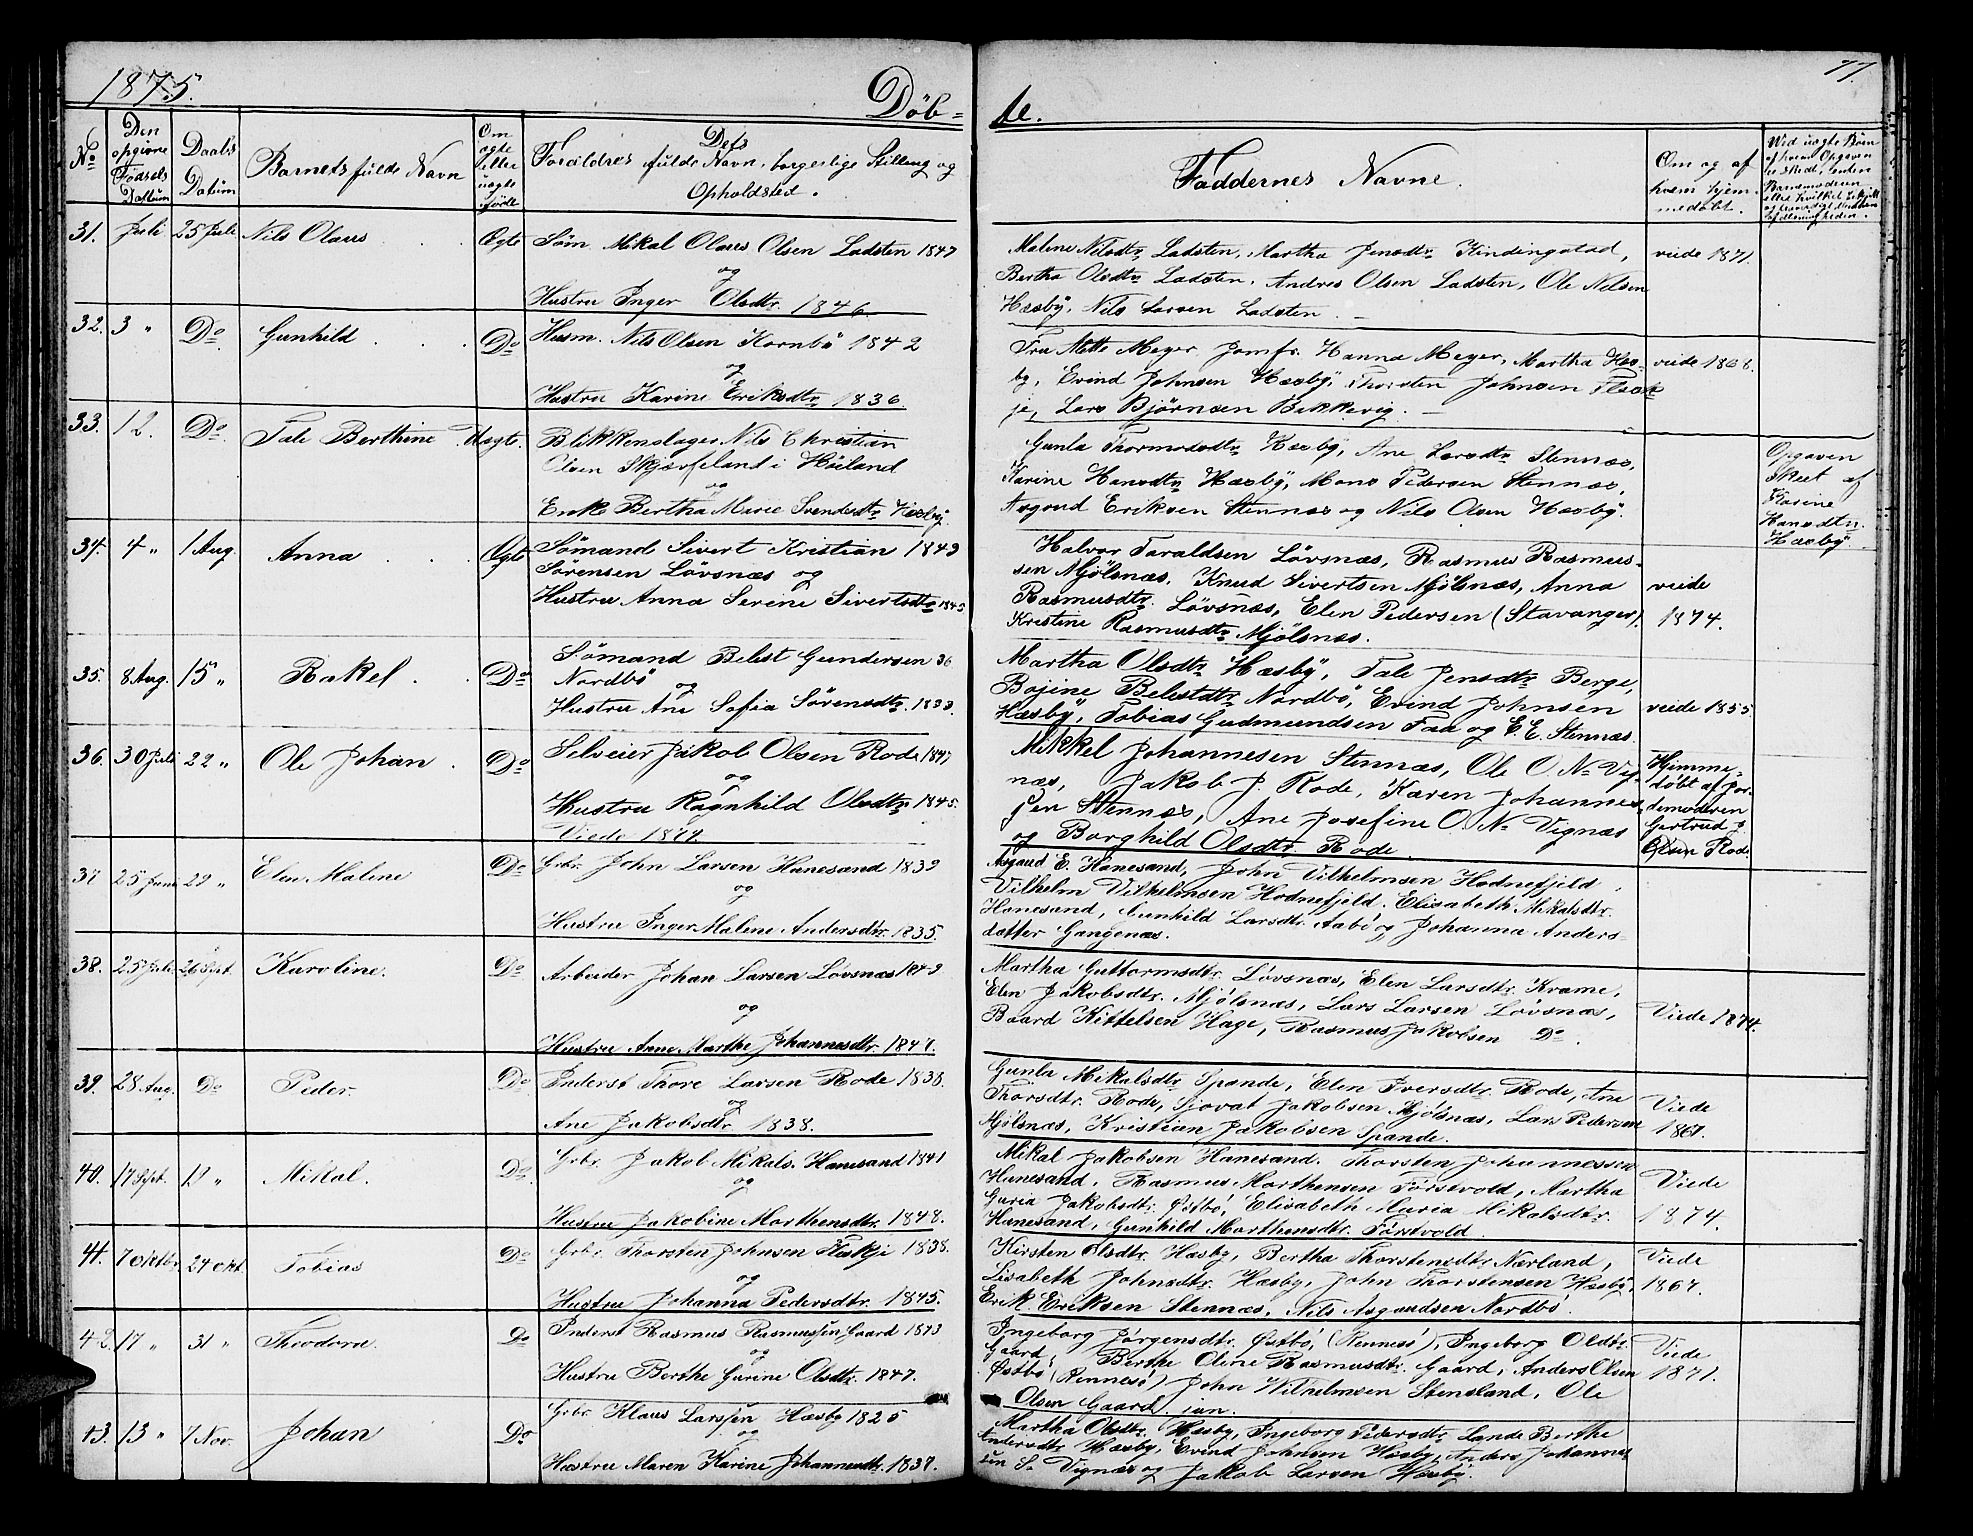 1875.
Döb-
te.
77.
No
Den opgivne Fødsels Datum
Daabs Datum
Barnets fulde Navn
Om ægte eller uægte født
Dets Forældres fulde Navn, borgerlige Stilling og Opholdsted.
Faddernes Navne.
Om og af hvem hjemmedøbt.
31. Juli 25 Juli Nils Olaus Ægte Søm. Mikal Olaus Olsen Ladsten 1847
og
Hustru Inger Olsdtr. 1846.
Malene Nilsdtr Ladsten, Martha Jensdtr Kindingstad,
Bertha Olsdtr Ladsten, Andres Olsen Ladsten, Ole Nilsen
Hæsby, Nils Larsen Ladsten.
viede 1871
32. 3 " Do Gunhild Do Husm. Nils Olsen Kornbö 1842
og
Hustru Karine Eriksdtr 1836.
Fru Mette Meyer, Jomfr. Hanna Meyer, Martha Hæs-
by, Erind Johnsen Hæsby, Thorsten Johnsen Flaak
je, Lars Bjørnsen Bekkevig.
viede 1868.
33. 12. Do Tale Berthine Uægte. Blikkenslager Nils Christian
Olsen Skjæveland i Höiland
og
Enke Bertha Marie Svendsdtr Hæsby
Gunla Thormodsdtr Hæsby, Ane Larsdtr Stennæs,
Karine Hansdtr Hæsby, Mons Pedersen Stennæs,
Asgaud Eriksen Stennæs og Nils Olsen Hæsby.
Opgaven
Skeet af
Karine
Hansdtr
Hæsby.
34. 4 " 1 Aug. Anna Ægte Sømand Sivert Kristian 1849
Sörensen Lövsnæs og
Hustru Anna Serine Sivertsdtr 1845
Halvor Taraldsen Lövsnæs, Rasmus Rasmus-
sen Mjölsnæs, Knud Sivertsen Mjölsnæs, Anna
Rasmusdtr. Lövsnæs, Elen Pedersen (Stavanger),
Kristine Rasmusdtr Mjölsnæs.
viede
1874.
35. 8 Aug. 15 " Rakel Do Sömand Belest Gundersen 36
Nordbö og
Hustru Ane Sofia Sörensdtr. 1833.
Martha Olsdtr Hæsby, Tale Jensdtr Berge,
Bojine Belestdtr Nordbö, Erind Johnsen
Hæsby, Tobias Gudmundsen Faa og E. E. Stennæs.
viede 1855
36. 30 Juli 22 " Ole Johan Do Selveier Jakob Olsen Rode 1847
og
Hustru Ragnhild Olsdtr 1845.
Viede 1874.
Mikkel Johannesen Stennæs, Ole O. N. Vig-
næs, Jakob J. Rode, Karen Johannes-
sen Stennæs, Ane Josefine O. N. Vignæs
og Borghild Olsdtr. Rode.
Hjemme-
döbt af Jor-
demoderen
Gertrud
Olsen Rode.
37 25 Juni 29 " Elen Malene Do Grbr. John Larsen Hanesand 1839
og
Hustru Inger Malene Andersdtr. 1835.
Asgaud E. Hanesand, John Vilhelmsen Hodnefjeld,
Vilhelm Vilhelmsen Hodnefjeld, Elisabeth Mikalsdtr.
Hanesand, Gunhild Larsdtr. Aabö og Johanna Anders-
datter Gangenæs.
38. 25 Juli 26 Sept. Karoline. Do Arbeider Johan Larsen Lövsnæs 1849
og
Hustru Anne Marthe Johannesdtr. 1847.
Martha Guttormsdtr. Lövsnæs, Elen Larsdtr. Krame,
Elen Jakobsdtr. Mjölsnæs, Lars Larsen Lövsnæs,
Baard Kittelsen Hage, Rasmus Jakobsen Do.
Viede 1874.
39. 28 Aug. Do Peder. Do Inderst Thore Larsen Rode 1838.
og
Ane Jakobsdtr 1838.
Gunla Mikalsdtr Spande, Elen Iversdtr. Rode, Ane
Thorsdtr. Rode, Sjovat Jakobsen Mjölsnæs, Lars Pedersen
Mjölsnæs, Kristian Jakobsen Spande.
Viede
1867.
40. 17 Sept. 19 " Mikal. Do Grbr. Jakob Mikals. Hanesand 1841
og
Hustru Jakobine Marthensdtr. 1848.
Mikal Jakobsen Hanesand. Thorsten Johannessen
Hanesand, Rasmus Marthensen Förstvold, Martha
Guria Jakobsdtr. Østbö, Elisabeth Maria Mikalsdtr.
Hanesand, Gunhild Marthensdtr. Förstvold.
Viede
1874.
41. 7 Oktbr. 24 Okt. Tobias Do Grbr. Thorsten Johnsen Flakje 1838.
og
Hustru Johanna Pedersdtr. 1845.
Kirsten Olsdtr. Hæsby, Bertha Thorstensdtr Nærland,
Lisabeth Johnsdtr. Hæsby, John Thorstensen Hæsby,
Erik Eriksen Stennæs, Nils Asgaudsen Nordbö.
Viede
1867.
42. 17 " 31 " Theodora. Do Inderst Rasmus Rasmussen Gaard 1843
og
Hustru Berthe Gurine Olsdtr. 1847.
Ingeborg Jörgensdtr. Østbö, (Rennesö), Ingeborg Olsdtr.
Gaard, Berthe Oline Rasmusdtr. Gaard, Anders Olsen
Østbö (Rennesö) John Wilhelmsen Stensland, Ole
Olsen Gaard.
Viede
1871.
43. 13 " 7 Nov. Johan Do Grbr. Klaus Larssen Hæsby 1825
og
Hustru Maren Karine Johannesdtr. 1837.
Martha Olsdtr Hæsby, Ingeborg Pedersdtr Lande Berthe
Andersdtr Hæsby, Erind Johnsen Hæsby, Anders Johannes
sen S. Vignæs og Jakob Larsen Hæsby.